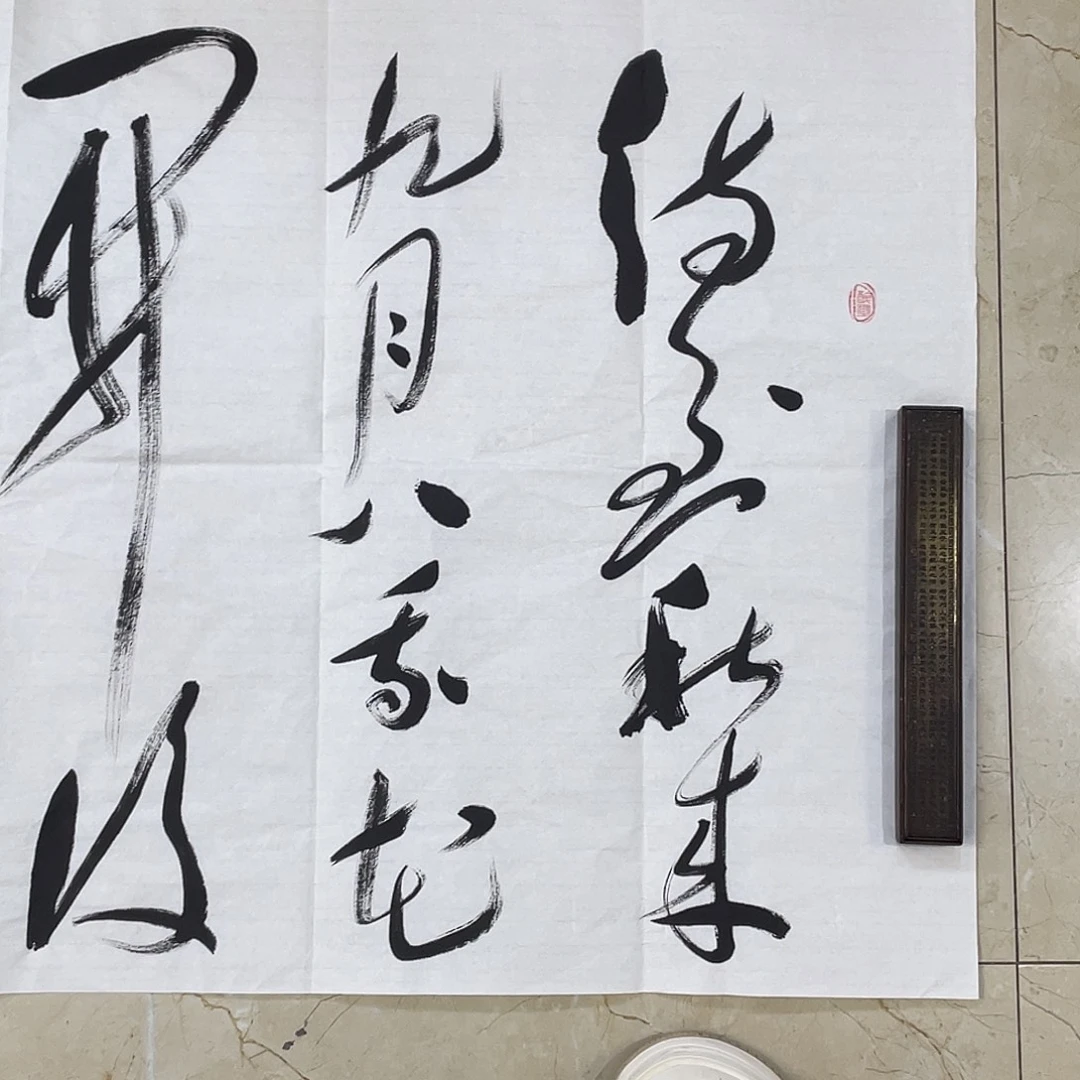 待到秋来
九月八我花
開後